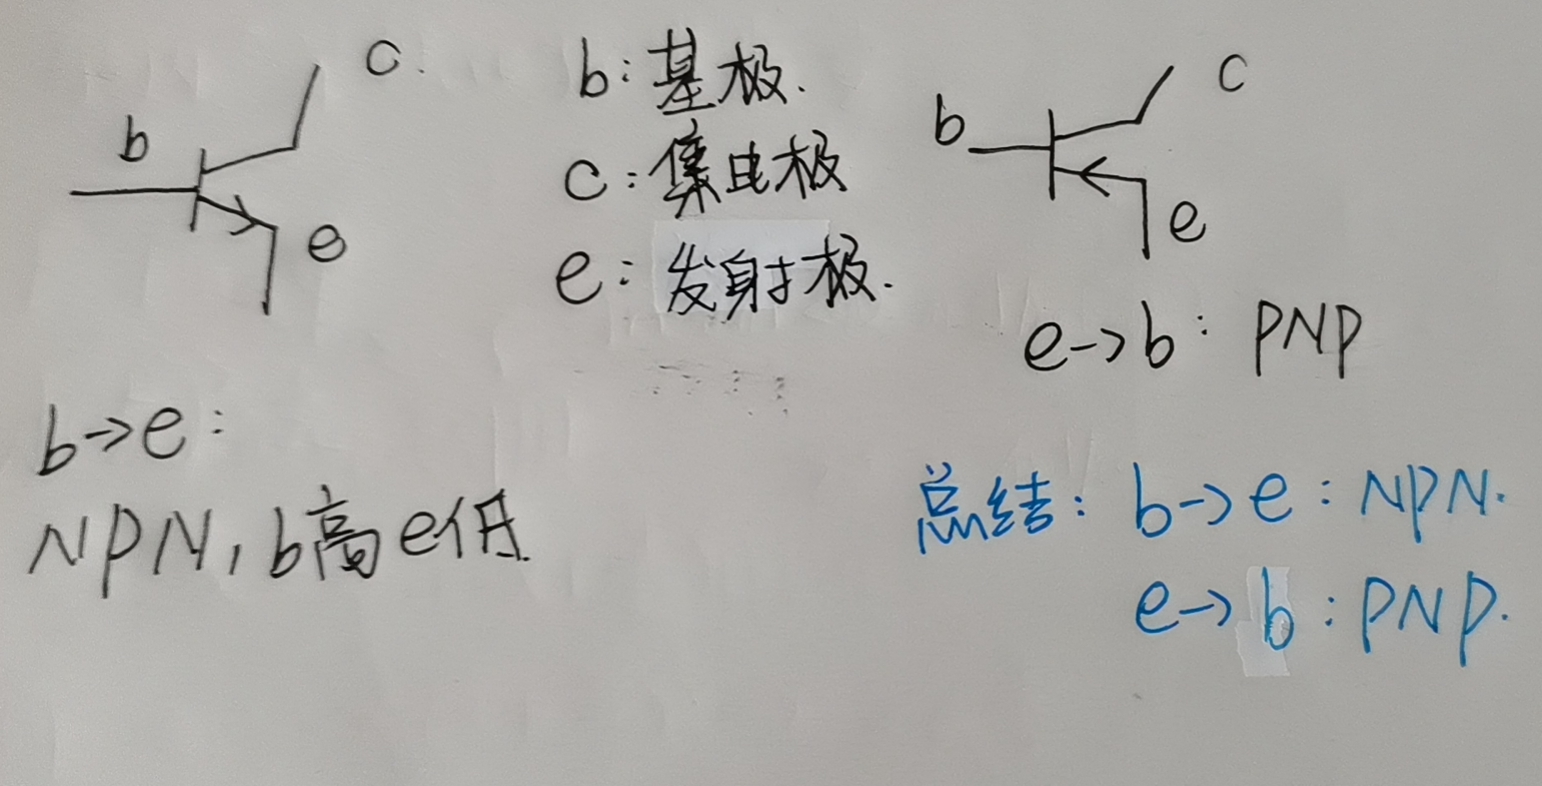 c.
b
e
b→e:
NPN, b高e低.
b:基极.
c:集电极
e:发射极.
b
c
e
e→b: PNP
总结: b→e: NPN.
e→b: PNP.